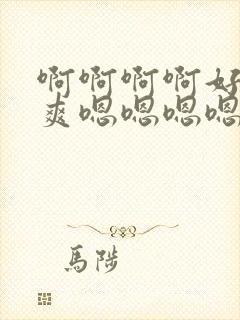 啊啊啊啊好
爽嗯嗯嗯嗯
馬陟